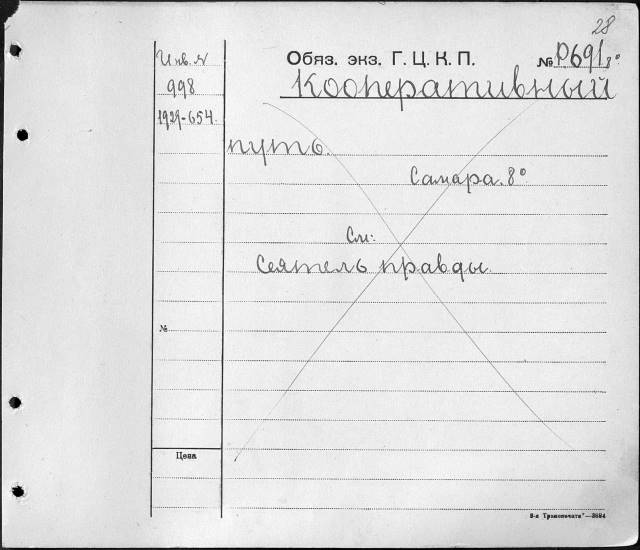 28
Инв. N
998
1929-654.
Обяз. экз. Г. Ц. К. П.
№ Р691 8°
Кооперативный
путь.
Самара. 8°
См:
Сеятель правды.
№
Цена